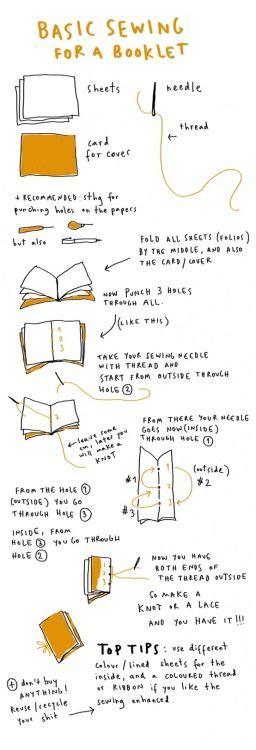 BASIC SEWING
FOR A BOOKLET
sheets
needle
thread
card
for cover
+ RECOMMENDED: sthg for
punching holes on the papers
but also
FOLD ALL SHEETS (FOLIOS)
BY THE MIDDLE, AND ALSO
THE CARD/COVER
NOW PUNCH 3 HOLES
THROUGH ALL.
(LIKE THIS)
1
2
3
TAKE YOUR SEWING NEEDLE
WITH THREAD AND
START FROM OUTSIDE THROUGH
HOLE 2
2
leave some
cm, later you
will make a
KNOT
FROM THERE YOUR NEEDLE
GOES NOW (INSIDE)
THROUGH HOLE 1
#1
1
(outside)
#2
2
#3
3
FROM THE HOLE 1
(OUTSIDE) YOU GO
THROUGH HOLE 3
INSIDE, FROM
HOLE 3 YOU GO THROUGH
HOLE 2
NOW YOU HAVE
BOTH ENDS OF
THE THREAD OUTSIDE
SO MAKE A
KNOT OR A LACE
AND YOU HAVE IT!!!
TOP TIPS: use different
colour/lined sheets for the
inside, and a coloured thread
or RIBBON if you like the
sewing enhanced.
+ don't buy
ANYTHING!
Reuse/recycle
your shit